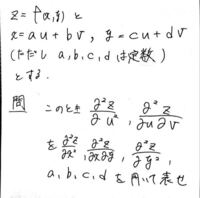 z = f(x,y) と
x = au + bv , y = cu + dv
(ただし a, b, c, d は定数)
とする.
問 このとき ∂²z/∂u² , ∂²z/∂u∂v
を ∂²z/∂x² , ∂²z/∂x∂y , ∂²z/∂y² ,
a, b, c, d を用いて表せ